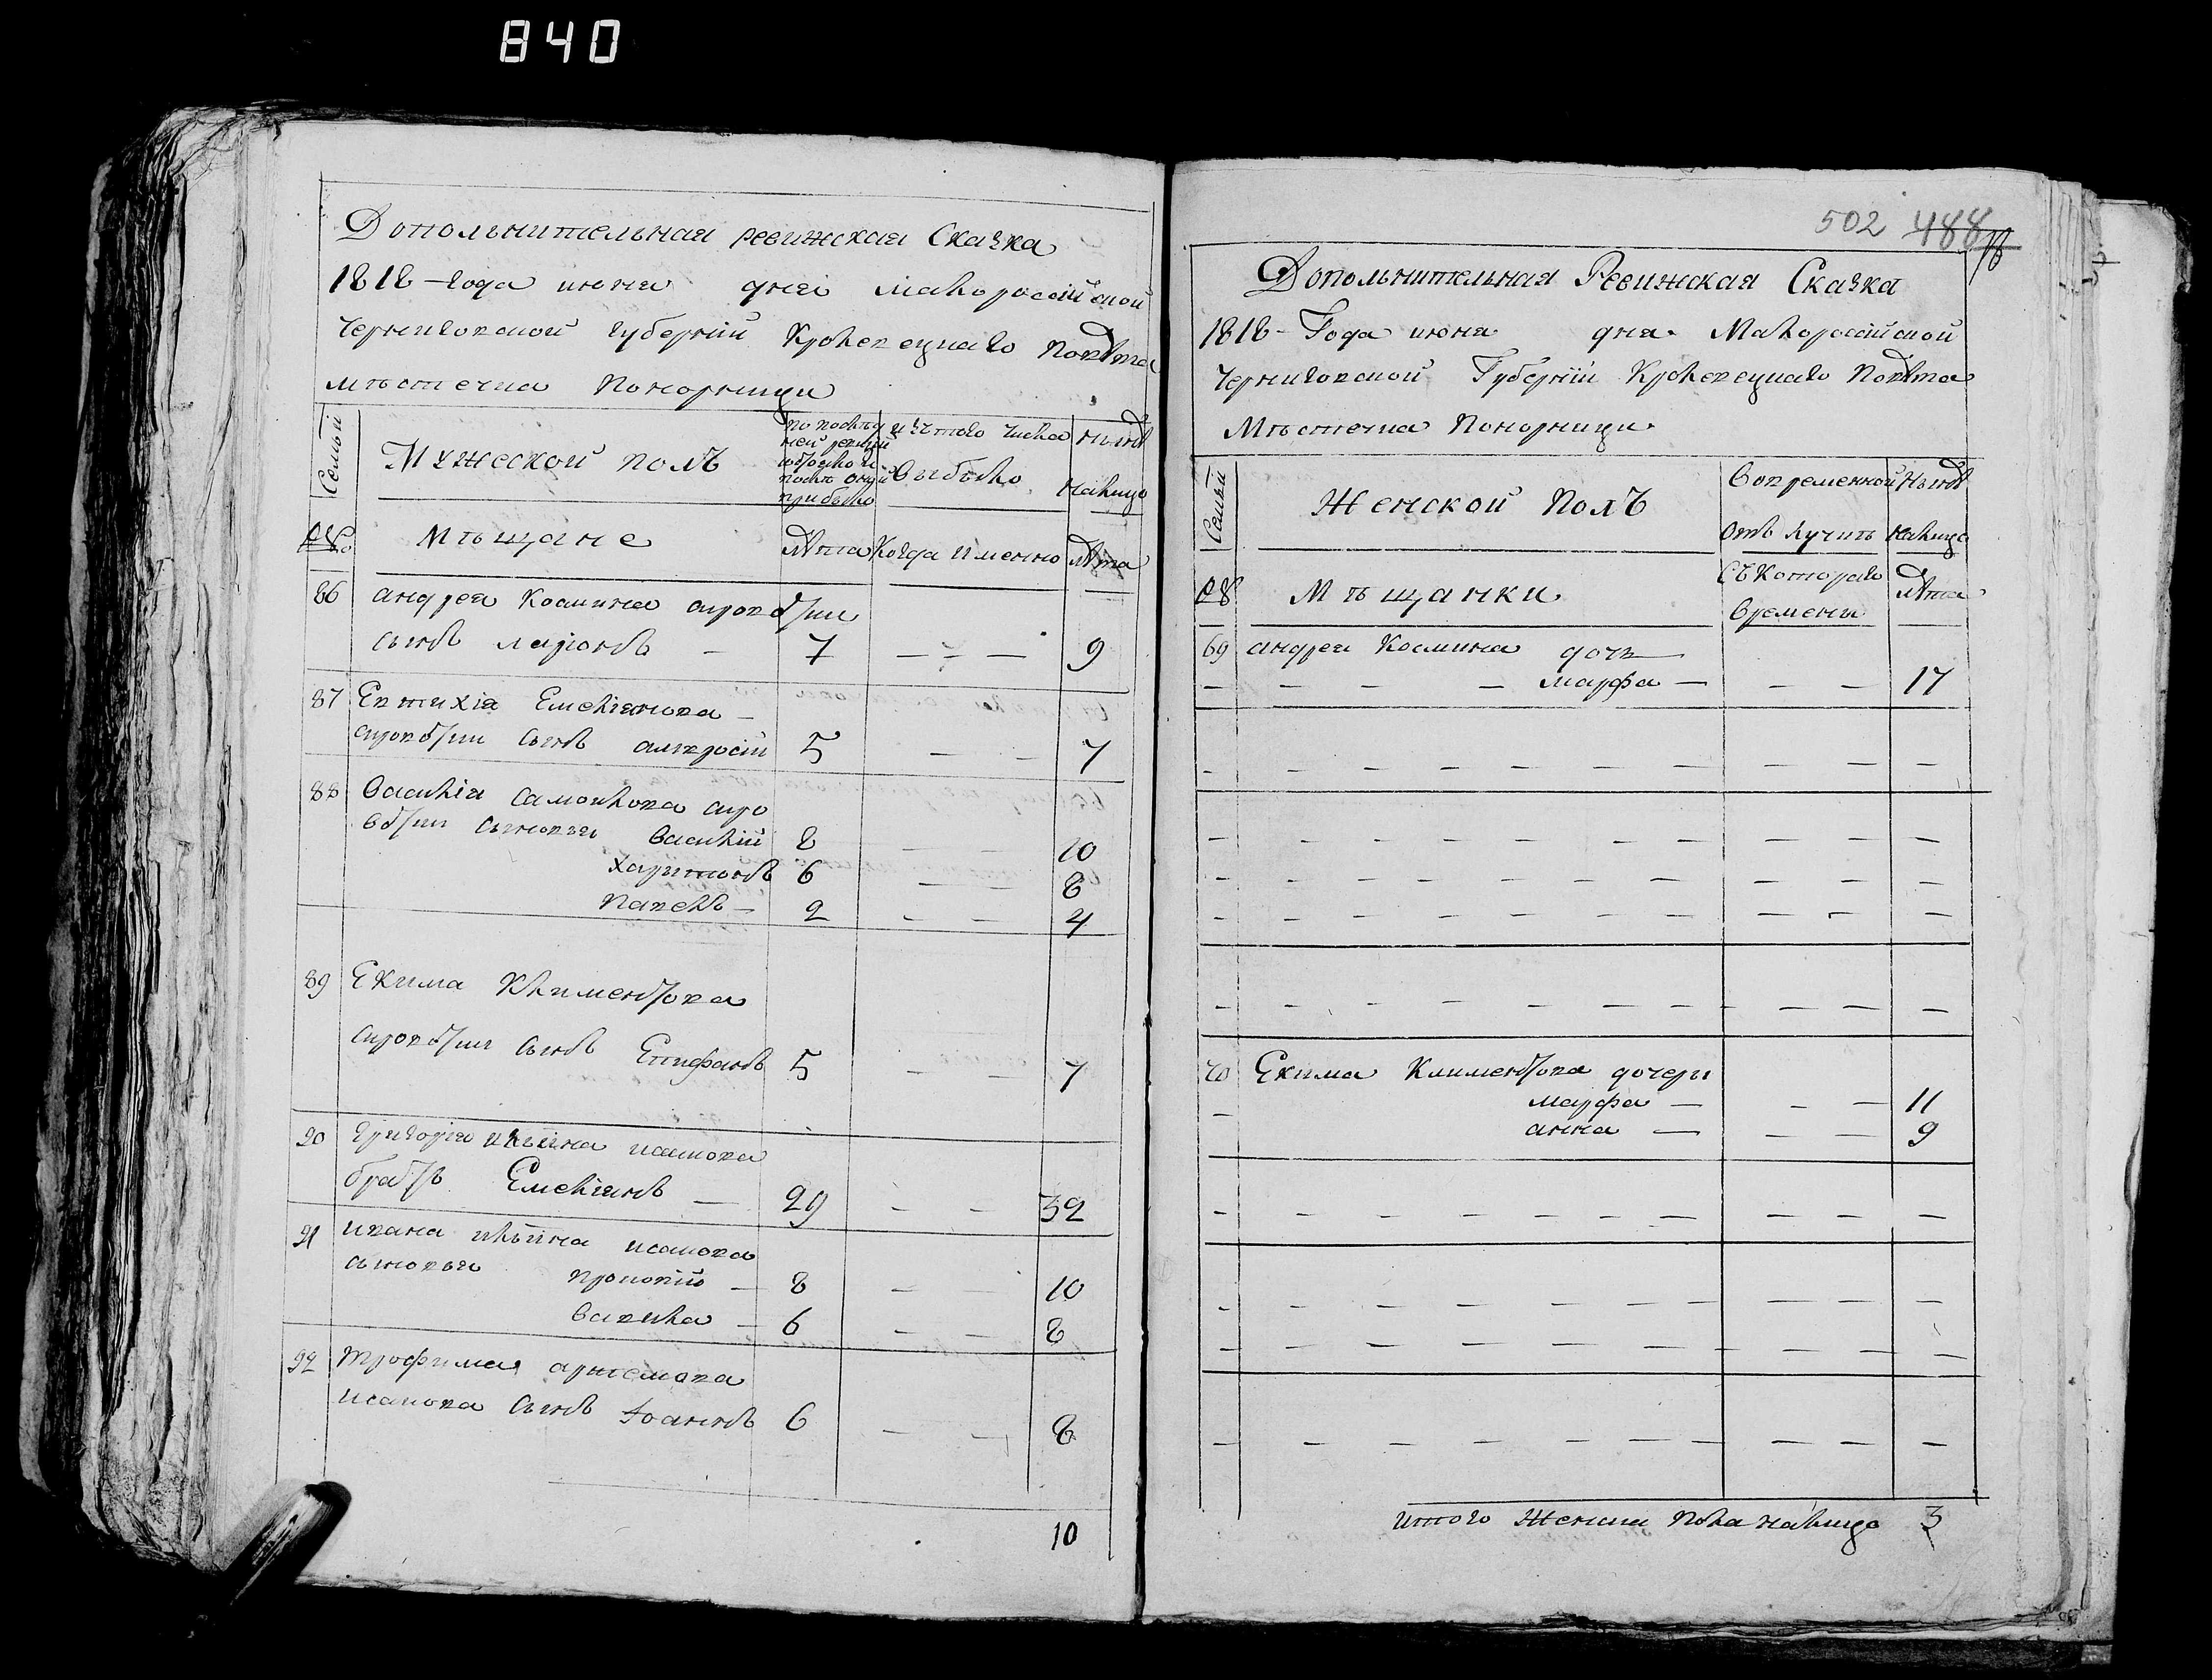 840
Дополнительная ревижская Сказка
1818 - года июня дня малороссійской
Черниговской губерніи Кролевецкаго Повѣта
мѣстечка Понорници
Семьи
Мужеской полъ
по послед
ней ревизіи
состояло и
после оной
прибыло
изъ того числа
Выбыло
ныне
налицо
№
Мѣщане
лѣта
Когда именно
лѣта
86 андрея Космина
сынъ ларионъ – 7 — — — 9
87 Евтихія Емельянова –
сынъ амвросій 5 — — 7
88 Василія Самойлова
сыновья василій 8 — — 10
харитонъ 6 — — 8
павелъ – 2 — — 4
89 Екима Климентова
сынъ Епифанъ 5 — — 7
90 григорія ильина исаиова
братъ Емельянъ — 29 — — 32
91 ивана ильина исаиова
сыновья прокопій – 8 — — 10
вавила – 6 — — 8
92 трофима артемова
исаиова сынъ Іоаннъ 6 — — 8
10
502 488
Дополнительная Ревижская Сказка
1818 - Года июня дня Малороссійской
Черниговской Губерніи Кролевецкаго Повѣта
Мѣстечка Понорници
Семьи
Женской Полъ
Во временной
отлучкѣ
ныне
налицо
№
Мѣщанки
Съ Котораго
Времени
лѣта
69 андрея Космина дочь
– – – – марфа — — — 17
70 Екима Климентова дочери
– марфа — – — 11
анна — — — 9
итого Женска Пола налицо 3